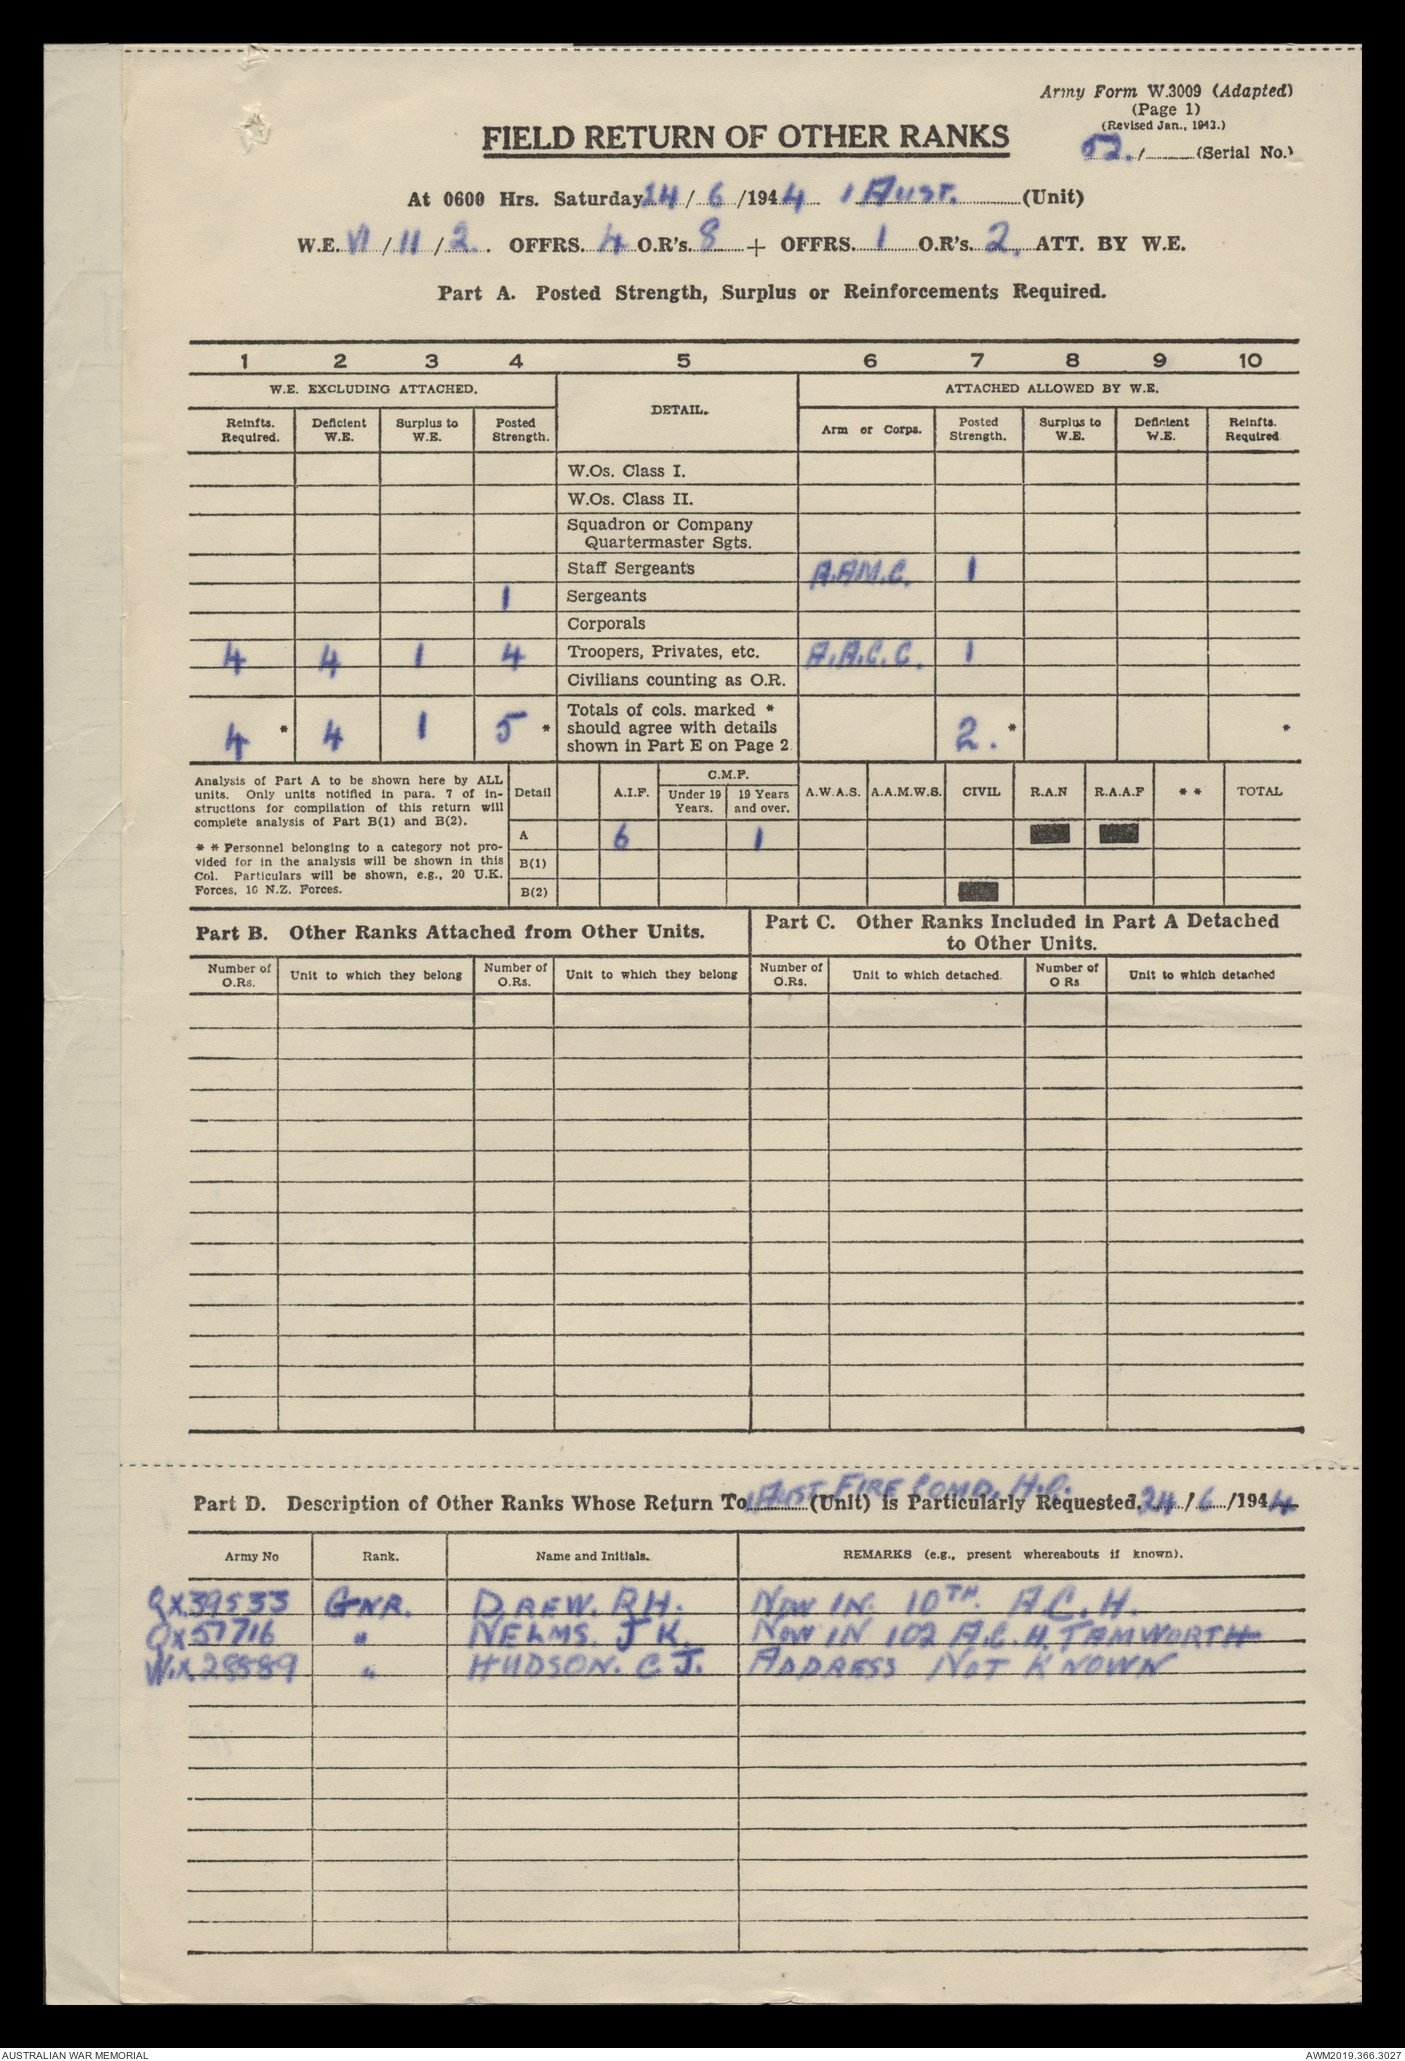 Army Form W.3009 (Adapted)
(Page 1)
(Revised Jan., 1943.)
FIELD RETURN OF OTHER RANKS
52. / (Serial No.)
At 0600 Hrs. Saturday 24 / 6 /1944 1 Aust. (Unit)
W.E. VI / 11 / 2. OFFRS. 4 O.R's. 8 + OFFRS. 1 O.R's. 2. ATT. BY W.E.
Part A. Posted Strength, Surplus or Reinforcements Required.
1 2 3 4 5 6 7 8 9 10
W.E. EXCLUDING ATTACHED. DETAIL. ATTACHED ALLOWED BY W.E.
Reinfts. Required. Deficient W.E. Surplus to W.E. Posted Strength. Arm or Corps. Posted Strength. Surplus to W.E. Deficient W.E. Reinfts. Required
W.Os. Class I.
W.Os. Class II.
Squadron or Company
Quartermaster Sgts.
Staff Sergeants A.A.M.C. 1
1 Sergeants
Corporals
4 4 1 4 Troopers, Privates, etc. A.A.C.C. 1
Civilians counting as O.R.
Totals of cols. marked *
4 * 4 1 5 * should agree with details 2. * *
shown in Part E on Page 2
Analysis of Part A to be shown here by ALL
units. Only units notified in para. 7 of in-
structions for compilation of this return will
complete analysis of Part B(1) and B(2).
* * Personnel belonging to a category not pro-
vided for in the analysis will be shown in this
Col. Particulars will be shown, e.g., 20 U.K.
Forces, 10 N.Z. Forces.
C.M.F.
Detail A.I.F. Under 19 Years. 19 Years and over. A.W.A.S. A.A.M.W.S. CIVIL R.A.N R.A.A.F * * TOTAL
A 6 1
B(1)
B(2)
Part B. Other Ranks Attached from Other Units.
Part C. Other Ranks Included in Part A Detached
to Other Units.
Number of O.Rs. Unit to which they belong Number of O.Rs. Unit to which they belong Number of O.Rs. Unit to which detached. Number of O Rs Unit to which detached
Part D. Description of Other Ranks Whose Return To 1 AUST FIRE COMD. H.Q. (Unit) is Particularly Requested. 24 / 6 /1944
Army No Rank. Name and Initials. REMARKS (e.g., present whereabouts if known).
QX39533 GNR. DREW. R H. NOW IN. 10TH. A.C.H.
QX57716 " NELMS. J K. NOW IN 102 A.G.H. TAMWORTH
WX28889 " HUDSON. C J. ADDRESS NOT KNOWN
AUSTRALIAN WAR MEMORIAL AWM2019.366.3027